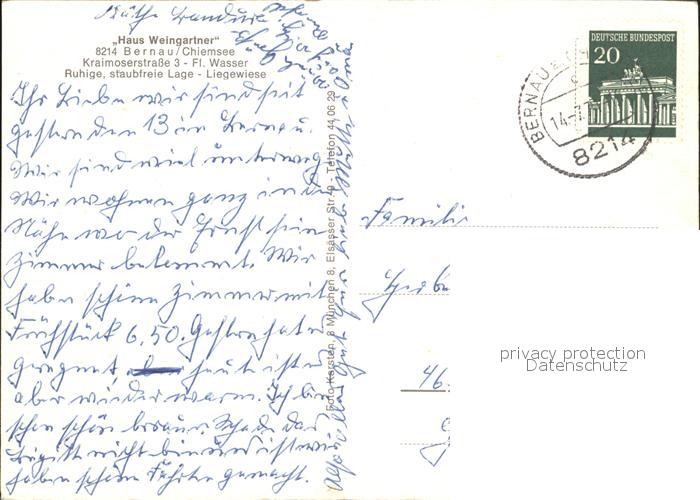 „Haus Weingartner"
8214 Bernau/Chiemsee
Kraimoserstraße 3 - Fl. Wasser
Ruhige, staubfreie Lage - Liegewiese
Ihr Lieben wir sind seit
gestern den 13 in Bernau.
Wir sind viel unterwegs
Wir wohnen ganz in der
Nähe wo der Ernst sein
Zimmer bekommt. Wir
haben schöne Zimmer mit
Frühstück 6,50. Gestern hat es
geregnet, heute ist es
aber wieder warm. Ich bin
schon schön braun. Schade das
Brigitt nicht bei uns ist wir
haben schöne Fahrten gemacht.
Foto Karsten, 8 München 8, Elsässer Str. - Telefon 44 06 29
DEUTSCHE BUNDESPOST
20
BERNAU
14.-7.
8214
Familie
46
privacy protection
Datenschutz